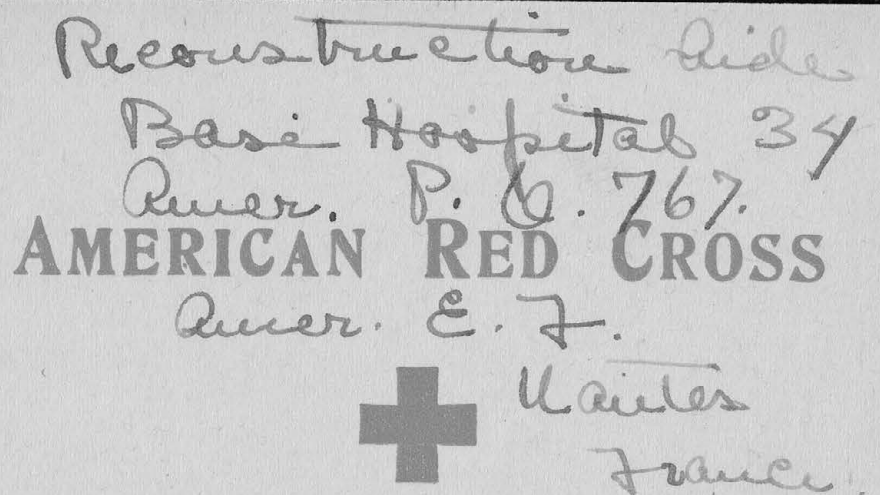 Reconstruction Aide
Base Hospital 34
Amer. P. O. 767.
AMERICAN RED CROSS
Amer. E. F.
Nantes
France.